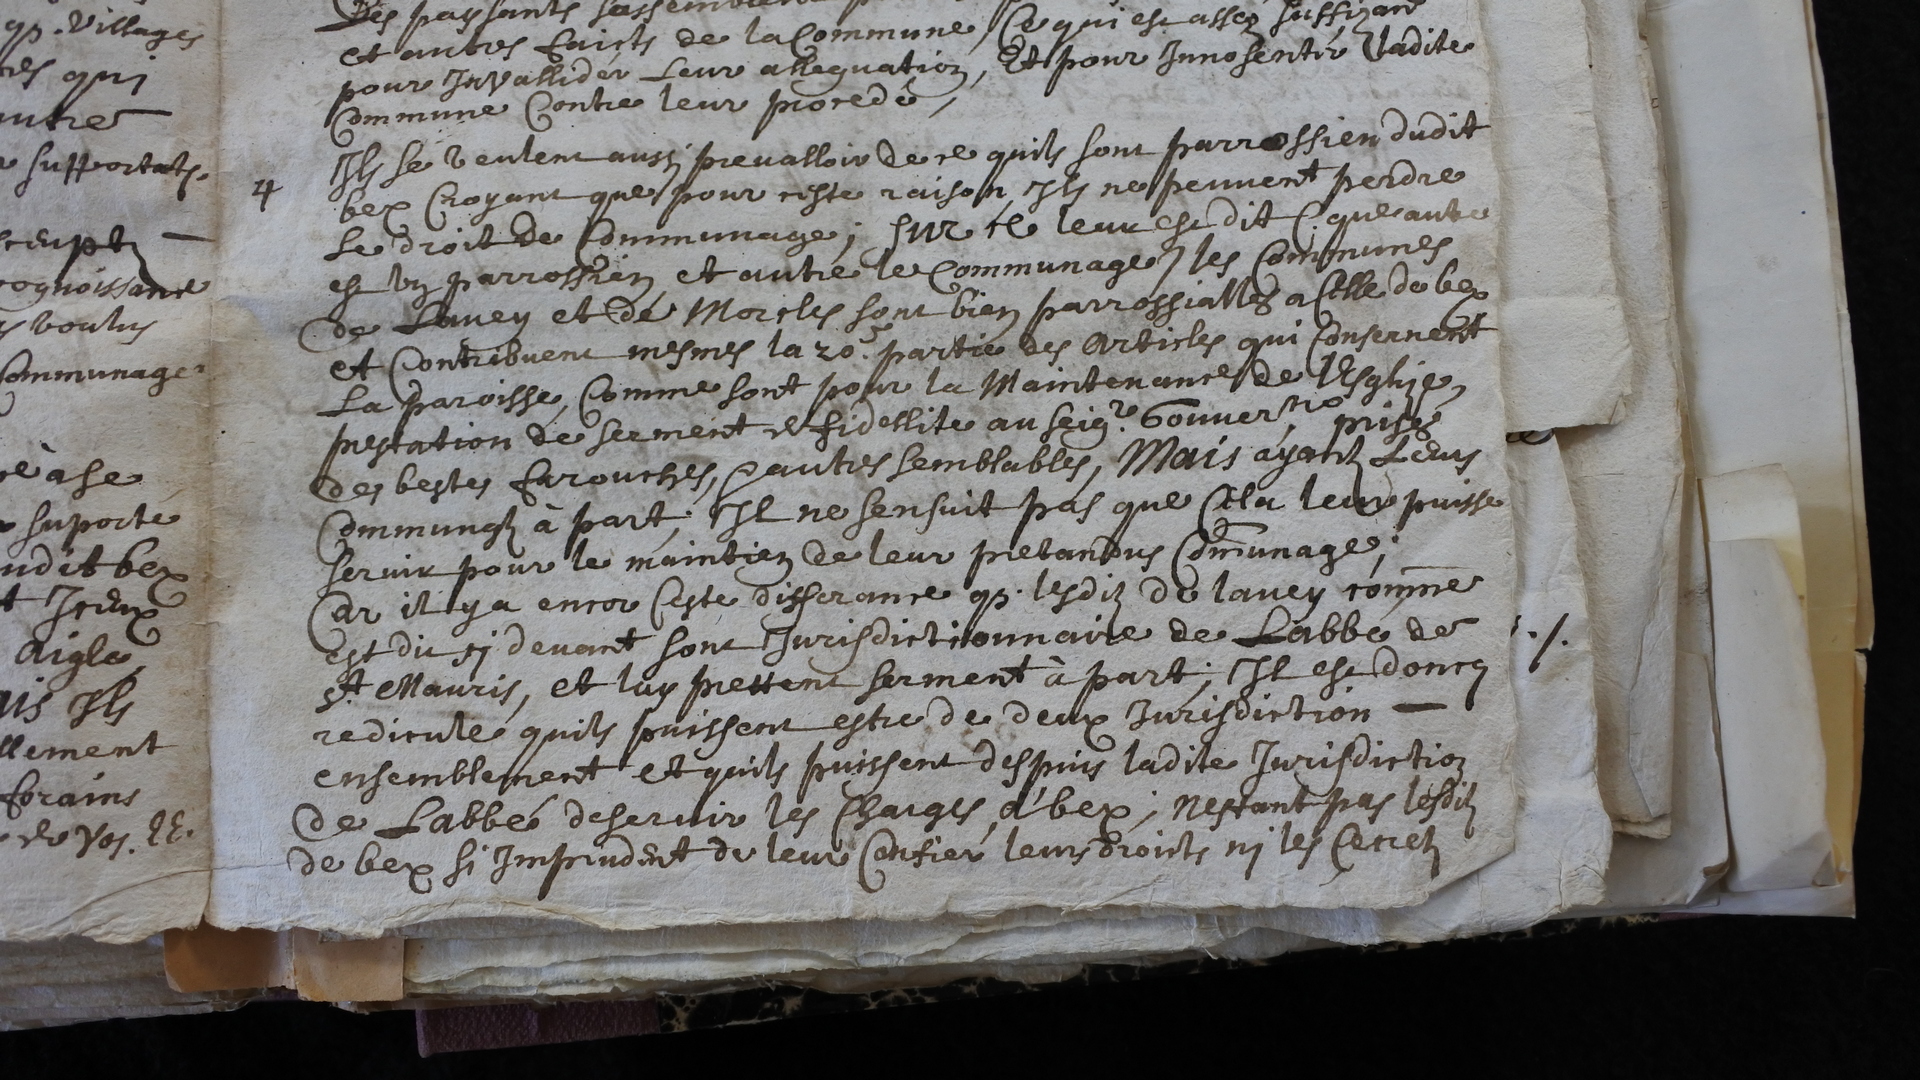 qp. Villages
qui
supportats.
cognoissance
voulus
Communage
à se
suporte
dudit bex
Iceux
Aigle
Ils
forains
de Vos. EE.
Des paysants
et autres faicts de la Commune, Ce qui est assez suffizant
pour Invallider Leur alleguation, Et pour Innosenter Ladite
Commune Contre leur procedé,
4 Ils se veulent aussi prevalloir de ce quils sont parrossien dudit
bex Croyant que pour ceste raison, Ils ne peuvent perdre
Le droit de Communage; sur ce leur est dit que autre
est un parrossien et autre le Communage, les Communes
de Lavey et de Morcles sont bien parrossialles a Celle de bex
et Contribuent mesmes la 20e. partie des Articles qui Consernent
La paroisse, Comme sont pour la Maintenance de l'Esglize,
prestation de serment de fidellite au Seigr. Gouver prises
des bestes farouches, & autres semblables, Mais ayant Leurs
Communes à part, Il ne sensuit pas que Cela leur puisse
servir pour le maintien de leur pretandus Comunage;
Car il y a encor Ceste differance qp. lesdit de lavey comme
est dit cy devant sont Jurisdictionnaire de Labbé de
St Mauris, et luy prettent serment à part; Il est doncq
rediculé quils puissent estre de deux Jurisdiction —
ensemblement et quils puissent despuis ladite Jurisdiction
de Labbé deservir les Charges d'bex; Nestant pas lesdit
de bex si Imprudent de leur Confier leurs droicts ni les